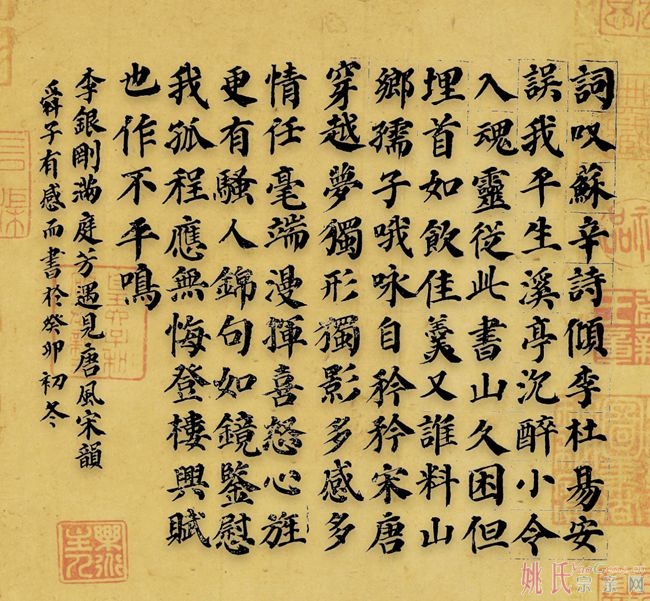 詞叹蘇辛詩傾李杜易安
誤我平生溪亭沉醉小令
入魂靈從此書山久困但
埋首如飲佳羹又誰料山
鄉孺子哦咏自矜矜宋唐
穿越夢獨形獨影多感多
情任毫端漫揮喜怒心旌
更有騷人錦句如鏡鑒慰
我孤程應無悔登樓興賦
也作不平鳴
李銀剛滿庭芳遇見唐風宋韻
舜子有感而書於癸卯初冬
姚氏宗亲网